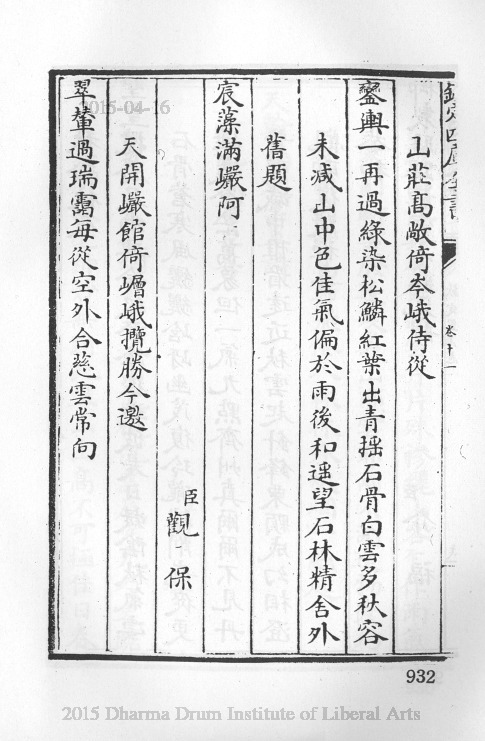 欽定四庫全書
卷十一
山莊髙敞倚夲峨侍從
鑾輿一再過綠染松鱗紅葉出青揺石骨白雲多秋容
未减山中色佳氣偏於雨後和遥望石林精舍外
舊題
宸藻滿巖阿
臣觀保
天開巖館倚嶒峨攬勝今邀
翠輦過瑞靄每從空外合慈雲常向
932
2015-04-16
2015 Dharma Drum Institute of Liberal Arts